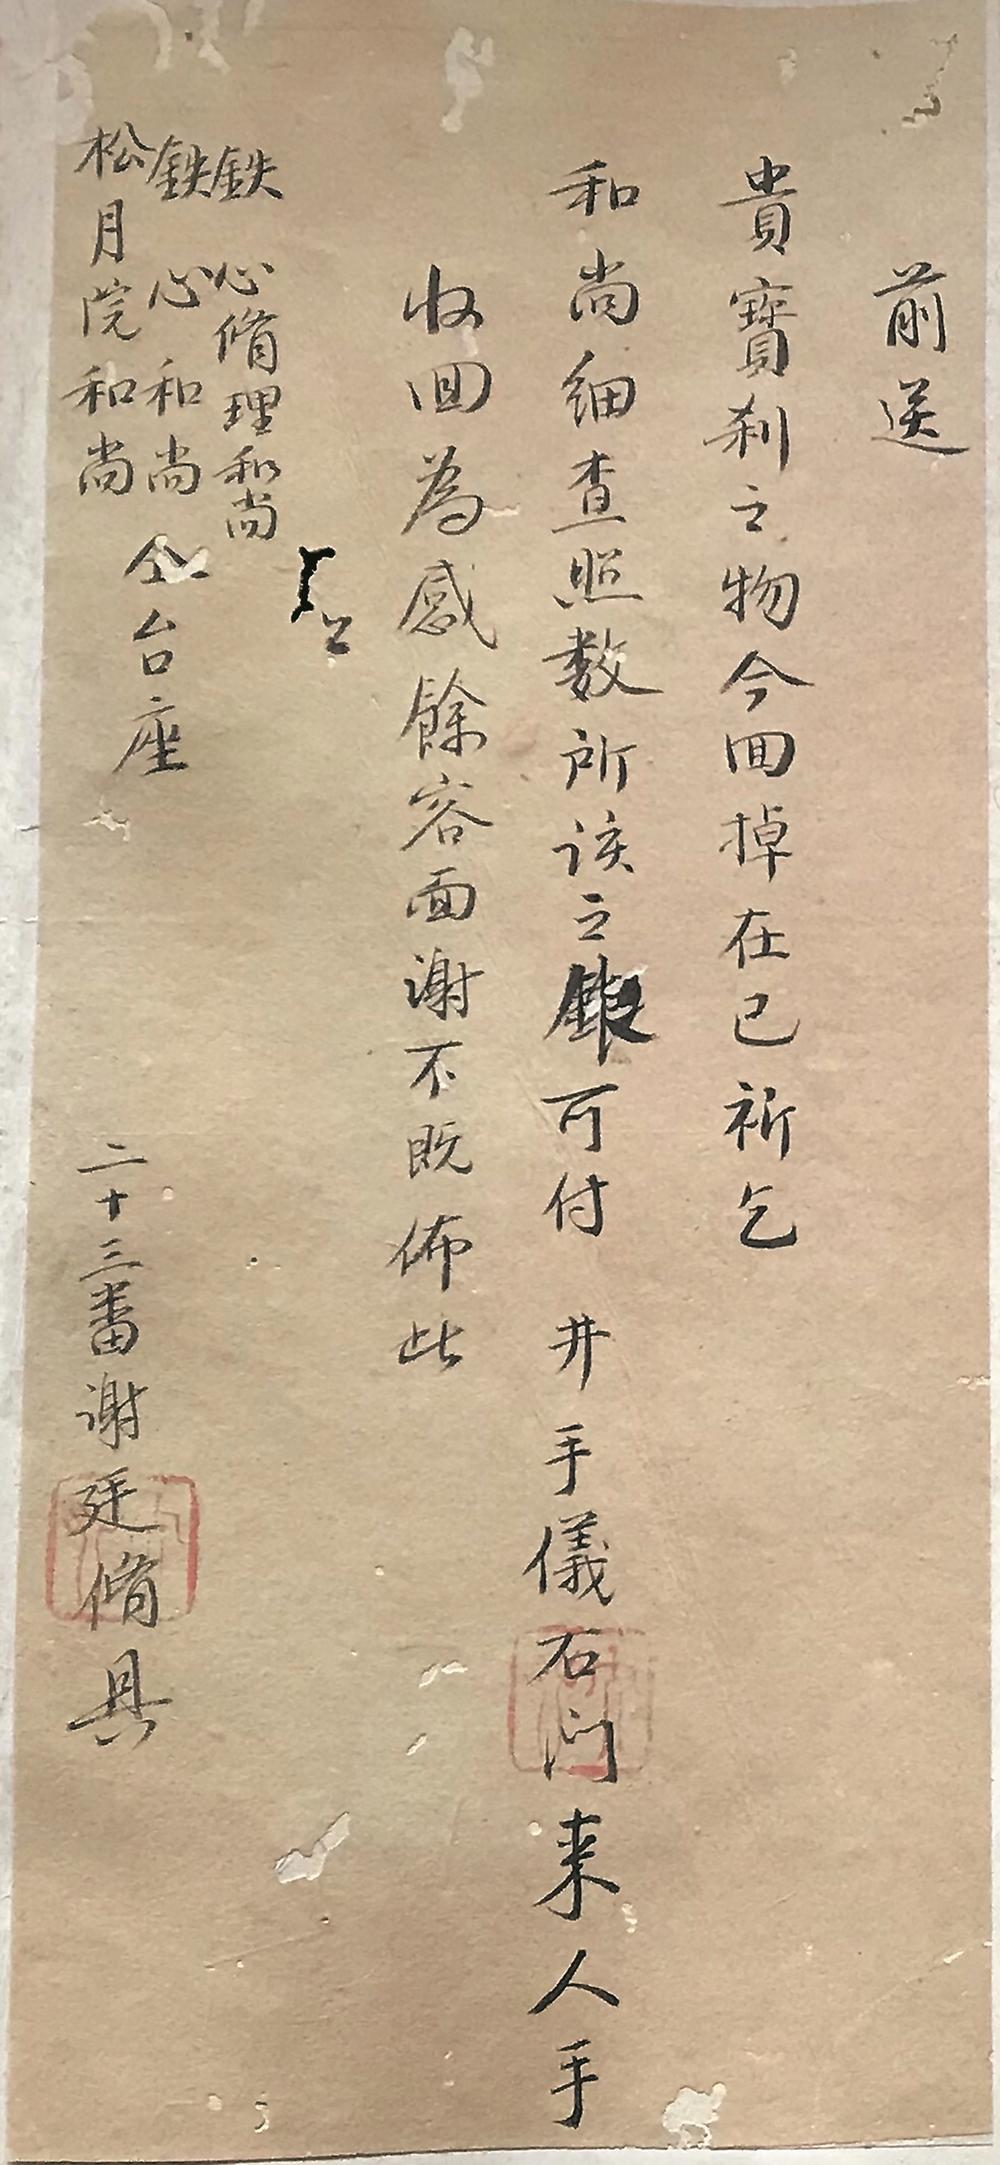 前送
貴寶刹之物今回掉在已祈乞
和尚細查照数所該之銀可付 井手儀石门来人手
收回為感餘容面謝不既佈此
上
鉄心脩理和尚
鉄心和尚
松月院和尚
仝台座
二十三番謝廷脩具